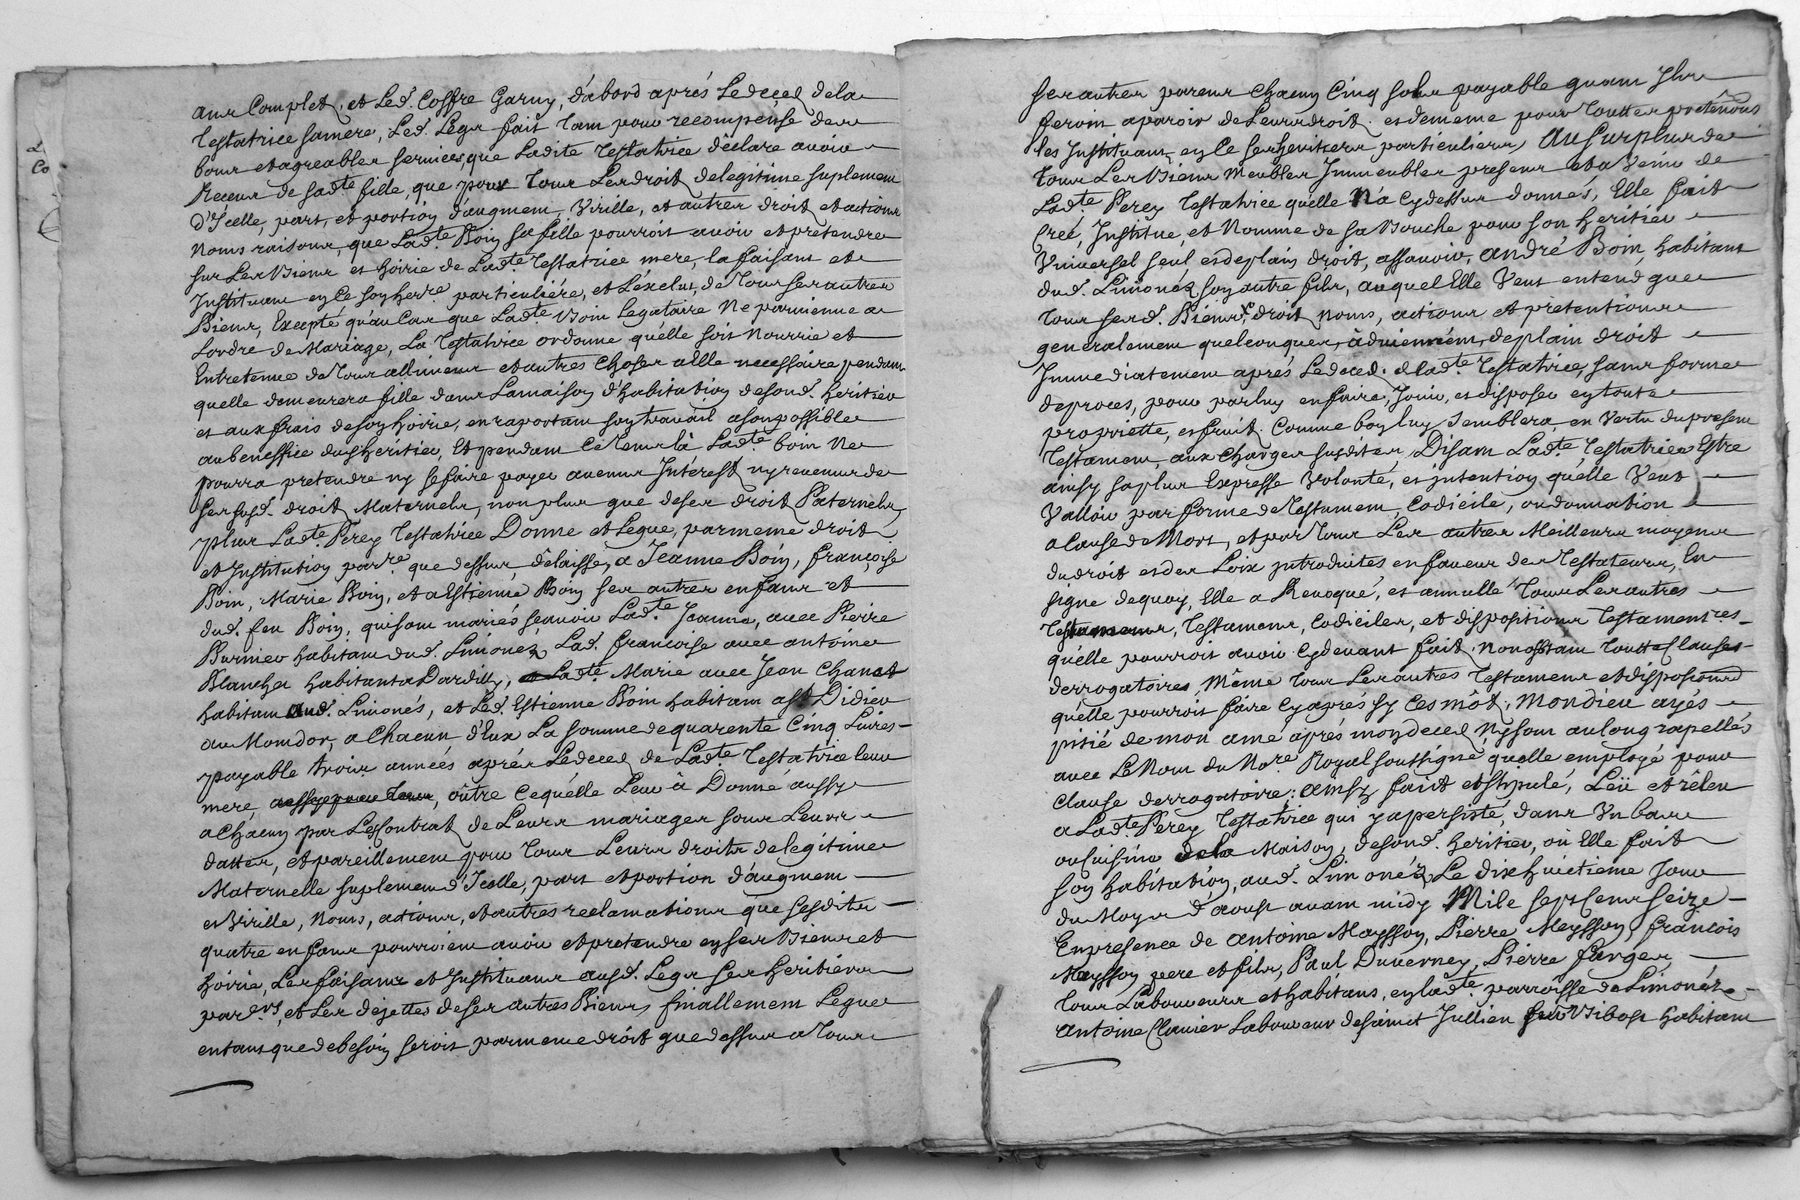 ans Complet, et Led. Coffre Garny, d'abord aprés Ledeced dela
Testatrice samere, Led. Legs fait tant pour recompense des
bons et agreables services, que Ladite Testatrice déclare avoir
Receus de sadte fille, que pour tous Les droits delegitime suplement
d'Icelle, part, et portion d'augment, Virille, et autres droits et actions
Noms raisons, que Ladte Boin sa fille pourroit avoir et pretendre
sur Les Biens et hoirie de Ladte Testatrice mere, la faisant et
Instituant en Ce son herre particuliére, et L'éxclut, de Tous ses autres
Biens, Excepté qu'au Cas que Ladte Boin Legataire Ne parvienne a
Lordre de Mariage, La Testatrice ordonne quélle soit Nourrie et
Entretenue de Tous alliments et autres choses a Elle necessaire pendant
quelle demeurera fille dans La maison d'habitation de sond. heritier
et aux frais de son hoirie, en raportant son travail a son possible
au beneffice dud heritier, Et pendant Ce tems là Ladte boin Ne
pourra pretendre ny se faire payer aucuns Interest ny revenus de
ses susd. droits Maternels, non plus que de ses droits Paternels,
plus Ladte Perey Testatrice Donne et Legue, par meme droit
et Institution parre que dessus, délaisse, a Jeanne Boin, françoise
Boin, Marie Boin, et a Estienne Boin ses autres enfans et
dud. feu Boin, qui sont mariés sçavoir Ladte Jeanne, avec Pierre
Burnier habitant dud. Limonez, Lad. françoise avec antoine
Blanchet habitant a Dardilly, Ladte Marie avec Jean Chanet
habitant Aud. Limonés, et Led. Estienne Boin habitant a St Didier
au Montdor, a Chacun d'Eux La somme de quarente Cinq Livres
payable trois années aprés Ledeced de Ladte Testatrice leur
mere, outre ce quélle Leur à Donné aussy
a Chacun par Les Contrat de Leurs mariages sous Leurs
dattes, et pareillement pour tous Leurs droits de legitime
Maternelle suplement d'Icelle, part et portion d'augment
et Virille, Noms, actions, et autres reclamations que ses dits
quatre enfans pourroient avoir et pretendre en ses Biens et
hoirie, Les faisant et Instituant ausd. Legs ses heritiers
parers, et Les dejettes de ses autres Biens, finallement Legue
entant que de besoin seroit par meme droit que dessus a tous
ses autres parens Chacun Cinq sols payable quant Ils
feront aparoir de Leurs droit, et de meme pour touttes pretentions
les Instituant en Ce ses heritiers particuliers, Au surplus de
tous Les Biens Meubles Immeubles presens et a Venir de
Ladte Perey Testatrice quelle N'a Cydessus donnés, Elle fait
Créé, Institue, et Nomme de sa Bouche pour son heritier
Universel seul et de plain droit, assavoir, André Boin, habitant
dud. Limonéz son autre fils, auquel Elle Veut entend que
tous sesd. Biens, droits noms, actions et pretentions
generalement quelconques, àdviennent, de plain droit
Immediatement aprés Ledeced. de Ladte Testatrice, sans forme
de proces, pour par luy en faire, Jouir, et disposer en toute
propriette, et fruit. Comme bon luy semblera, en Vertu du present
Testament, aux charges susdites, Disant Ladte Testatrice Estre
ainsy sa plus Expresse Volonté, et intention quélle Veut
Valloir par forme de Testament, Codicile, ou donnation
a Cause de Mort, et par Tous Les autres Meilleurs moyens
du droit et des Loix introduites en faveur des Testateurs, En
signe dequoy, Elle a Revoqué, et annullé Tous Les autres
Testamens, Codiciles, et dispositions Testamentres
quélle pourroit avoir Cydevant fait, Nonobstant toutte Clauses
derrogatoires, Même tous Les autres Testament et disposions
quélle pourroit faire Cy aprés sy Ces môts; Mon dieu ayés
pitié de mon ame aprés mon deced Ny sont au long rapellés
avec Le Nom du Nore Royal soussigné quelle employé pour
Clause derrogatoire; ainsy fait et stipulé, Leü et réleu
a Ladte Perey Testatrice qui y a persisté, dans Un bas
ou Cuisine dela Maison, de sond. heritier, où Elle fait
son habitation, aud. Limonéz, Le dix huictieme Jour
du Moys d'aoust avant midy Mile sept Cens seize
En presence de antoine Maysson, Pierre Meysson, françois
Maysson pere et fils, Paul Duverney, Pierre farges,
Tous Laboureurs et habitans, en ladte parroisse de Limonéz
antoine Clavier Laboureur de saint Jullien sur Bibost habitant